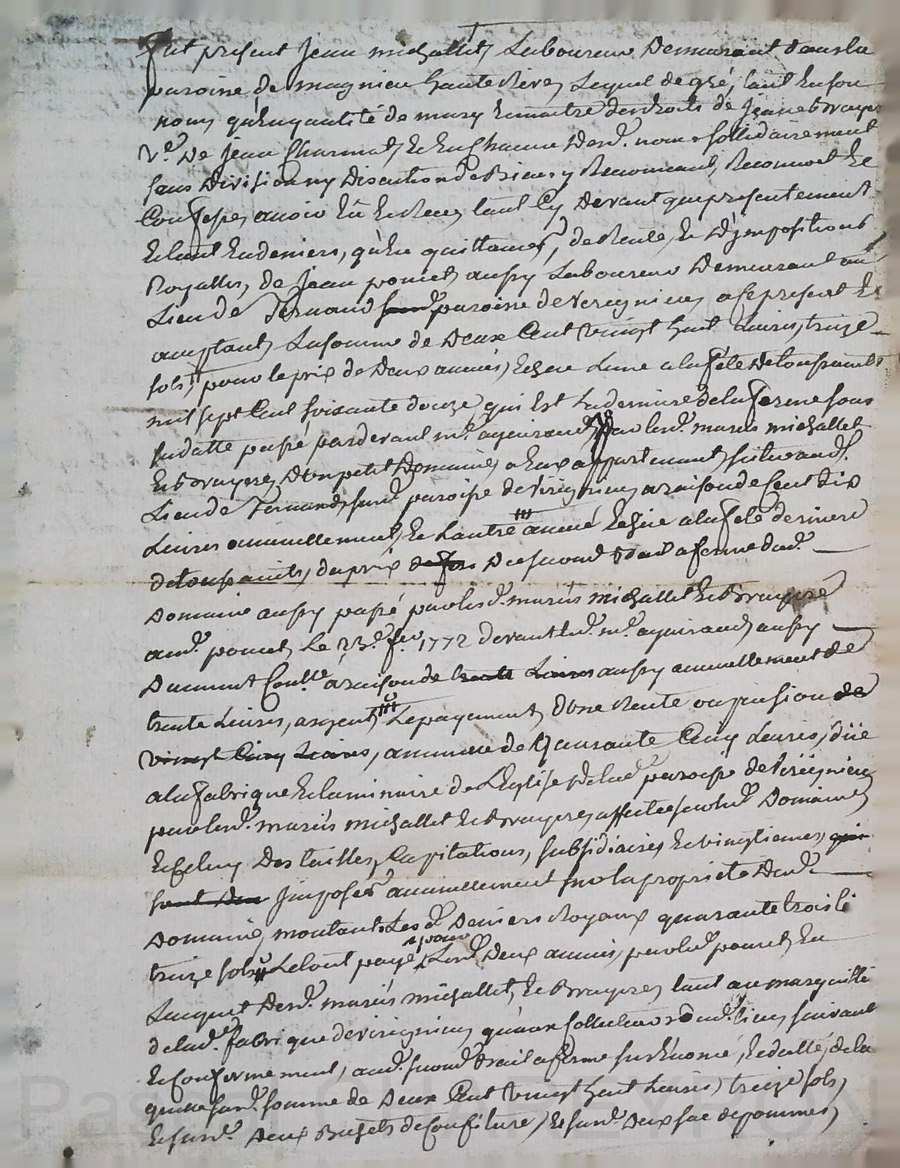 Fut present Jean michallet, Laboureur Demeurant dans la
paroisse de magnieu hauterive, Lequel de gré, tant En son
nom qu'En quantité de mary Et maitre des droits de Jeanne bruyere
Ve. De Jean Charmet, Et En Chacun Desd. noms solidairement
sans Division ny Discution de Biens y Renonceant, Reconnoit Et
Confesse, avoir Eû Et Receu tant Cy Devant que presentement
Et tant En deniers, qu'En quittances, de Rente, Et D'jmpositions
Royalles, de Jean poncet, aussy Laboureur Demeurant au
Lieu de paroisse de vereignieu, a ce present Et
acceptant, La somme de Deux Cent vingt huit Livres, treize
sols, pour le prix de Deux années, Echeue Lune a la fête De toussaints
mil sept Cent soixante douze, qui Est La derniere de la ferme sous
sa datte passé pardevant me. par lesd. mariés michallet
Et bruyere, D'un petit Domaine, a Eux appartenant, situé aud.
Lieu de susd. paroisse de vereignieu a raison de Cent dix
Livres annuellement, Et L'autre année Echue a la fete derniere
de toussaints, du prix Du second Bail a ferme dud.
Domaine aussy passé par lesd. mariés michallet Et Bruyere
aud. poncet, Le 23e. fer. 1772 devant led. me. aussy
Dument Coulle. a raison de trente Livres aussy annuellement de
trente Livres, argent, Le payement, D'une Rente ou pension de
vingt Cinq Livres, annuelle de Quarante Cinq Livres, düe
a la fabrique Et Luminaire de L'Eglise De lad. paroisse de vereignieu
par lesd. mariés michallet Et bruyere, affectée sur led. Domaine,
Et Celuy Des tailles, Capitations, subsidiaires Et vingtiemes, qui
sont Dus jmposés annuellement sur la propriete Dud.
Domaine, montants Lesd. Deniers Royaux quarante trois li
treize sols, Le tout payé pour Lesd. Deux années, par led. poncet En
L'acquit Desd. mariés michallet, Et Bruyere, tant au marguillé
de lad. fabrique de vereignieu, qu'aux Collecteurs dud. lieu suivant
Et Conformement, aud. second Bail a ferme sus Enoncé, Et datté, de la
quelle susd. somme de Deux Cent vingt huit Livres, treize sols,
Et susd. Deux de Confiture, Et susd. Deux sac de pommes,